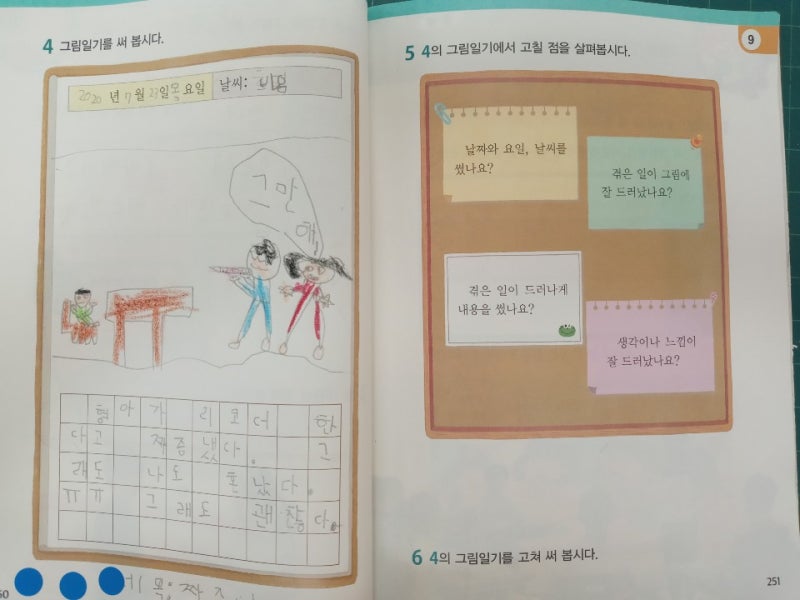 4 그림일기를 써 봅시다.
2020 년 7 월 23 일 목 요일 날씨: 비옴
그만
해
형아가 리코더 한
다고 짜증냈다. 그
래도 나도 혼났다.
ㅠㅠ 그래도 괜찮다.
5 4의 그림일기에서 고칠 점을 살펴봅시다.
9
날짜와 요일, 날씨를
썼나요?
겪은 일이 그림에
잘 드러났나요?
겪은 일이 드러나게
내용을 썼나요?
생각이나 느낌이
잘 드러났나요?
6 4의 그림일기를 고쳐 써 봅시다.
251